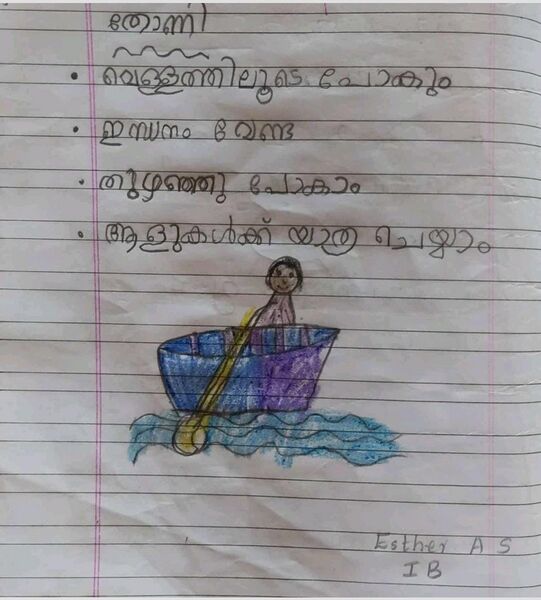 തോണി
• വെള്ളത്തിലൂടെ പോകും
• ഇന്ധനം വേണ്ട
• തുഴഞ്ഞു പോകാം
• ആളുകൾക്ക് യാത്ര ചെയ്യാം
Esther A S
I B